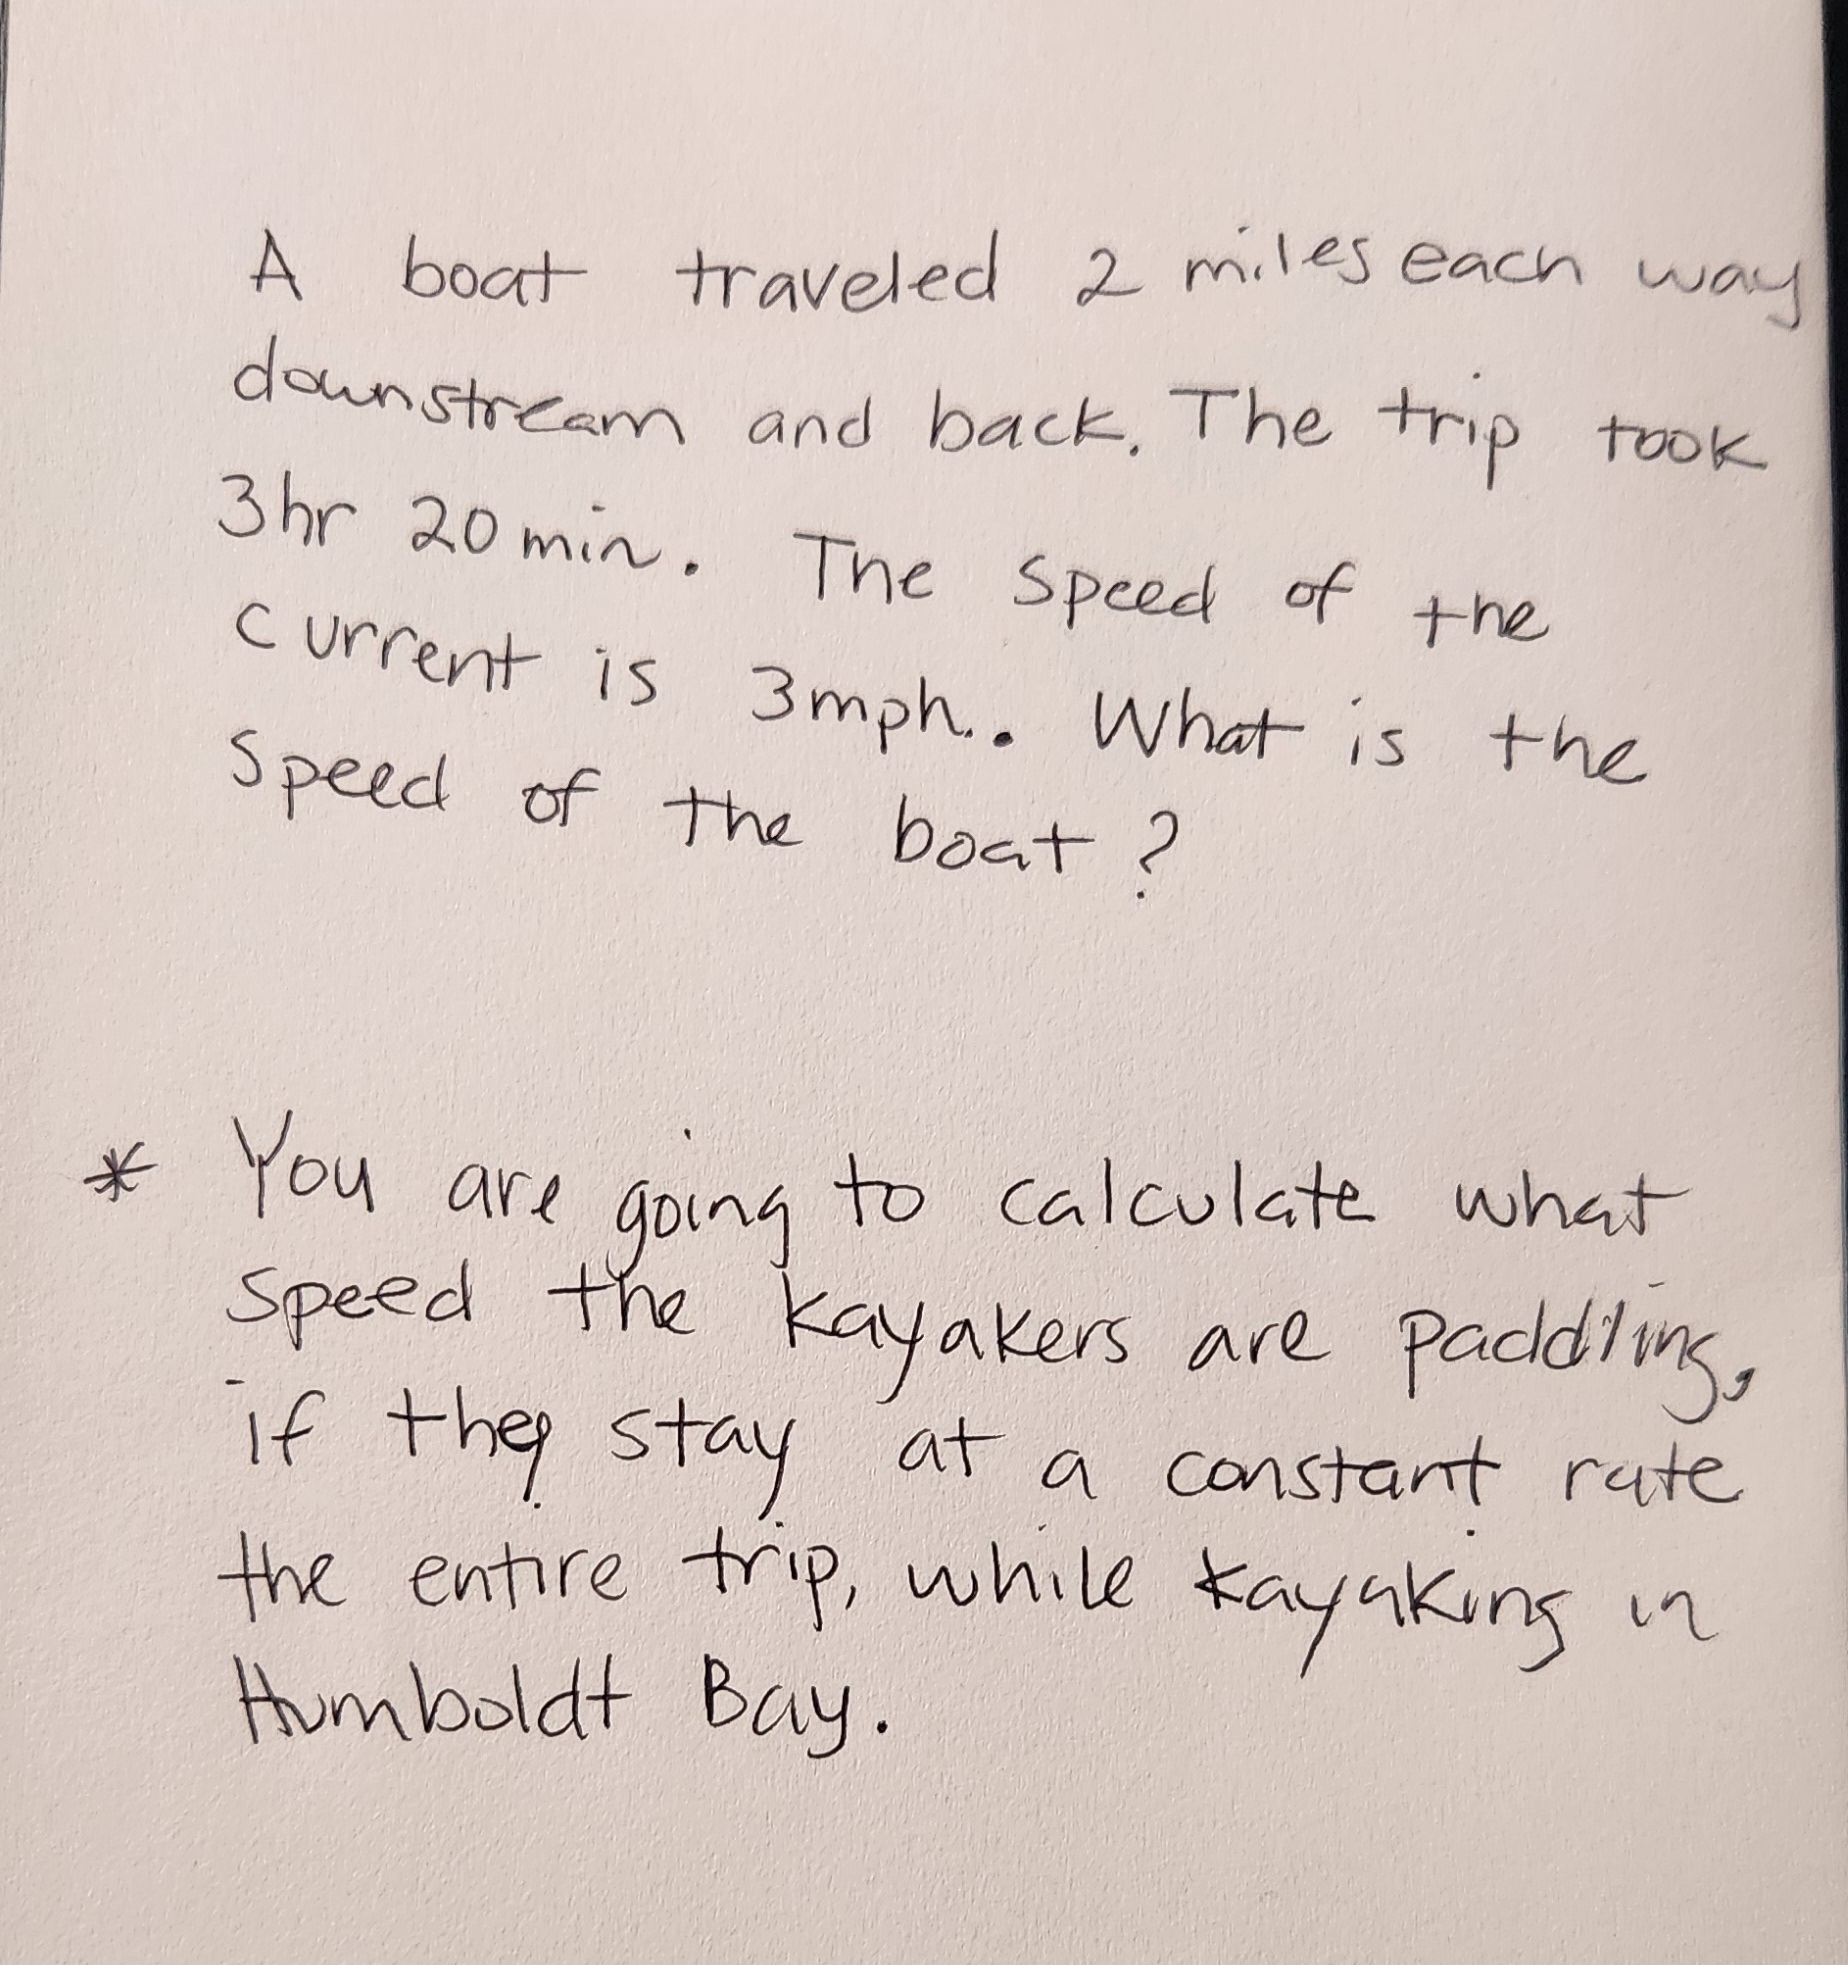 A boat traveled 2 miles each way
downstream and back. The trip took
3hr 20 min. The speed of the
current is 3mph.. What is the
speed of the boat?
* You are going to calculate what
speed the kayakers are paddling,
if they stay at a constant rate
the entire trip, while kayaking in
Humboldt Bay.